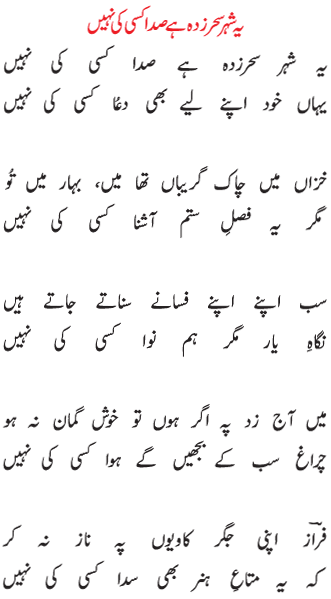 یہ شہر سحر زدہ ہے صدا کسی کی نہیں
یہ شہر سحر زدہ ہے صدا کسی کی نہیں
یہاں خود اپنے لیے بھی دعا کسی کی نہیں
خزاں میں چاک گریباں تھا میں، بہار میں تُو
مگر یہ فصلِ ستم آشنا کسی کی نہیں
سب اپنے اپنے فسانے سناتے جاتے ہیں
نگاہِ یار مگر ہم نوا کسی کی نہیں
میں آج زد پہ اگر ہوں تو خوش گمان نہ ہو
چراغ سب کے بجھیں گے ہوا کسی کی نہیں
فرازؔ اپنی جگر کاویوں پہ ناز نہ کر
کہ یہ متاعِ ہنر بھی سدا کسی کی نہیں